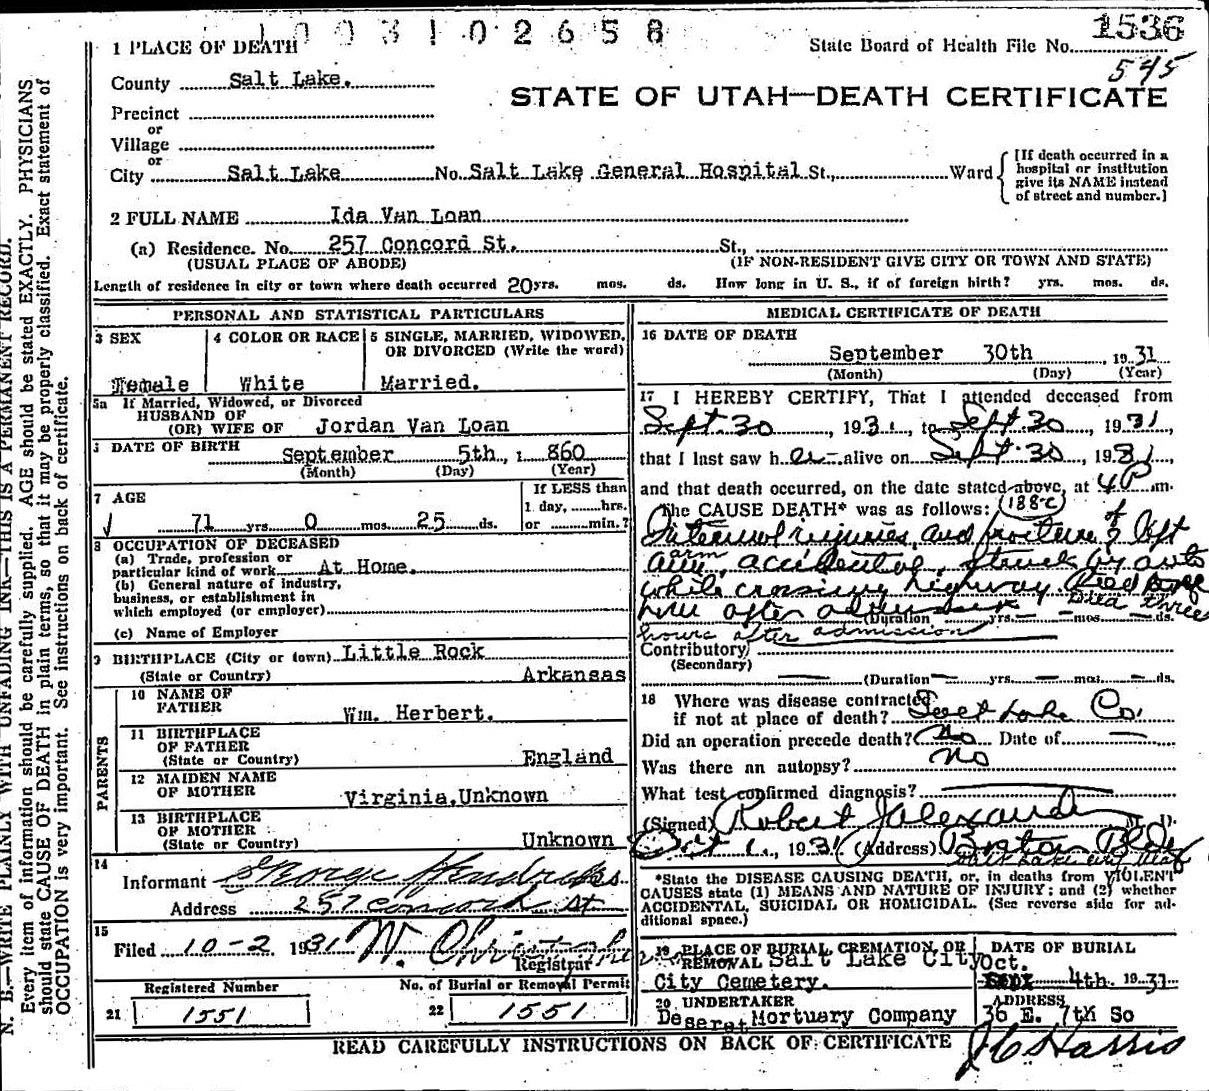 1003102658
1536
1 PLACE OF DEATH
State Board of Health File No.
545
County Salt Lake.
STATE OF UTAH—DEATH CERTIFICATE
Precinct
or
Village
or
City Salt Lake No. Salt Lake General Hospital St., Ward
[If death occurred in a
hospital or institution
give its NAME instead
of street and number.]
2 FULL NAME Ida Van Loan
(a) Residence. No. 257 Concord St. St.,
(USUAL PLACE OF ABODE) (IF NON-RESIDENT GIVE CITY OR TOWN AND STATE)
Length of residence in city or town where death occurred 20 yrs. mos. ds. How long in U. S., if of foreign birth? yrs. mos. ds.
PERSONAL AND STATISTICAL PARTICULARS
3 SEX
Female
4 COLOR OR RACE
White
5 SINGLE, MARRIED, WIDOWED,
OR DIVORCED (Write the word)
Married.
5a If Married, Widowed, or Divorced
HUSBAND OF
(OR) WIFE OF Jordan Van Loan
6 DATE OF BIRTH September 5th, 1 860
(Month) (Day) (Year)
7 AGE
71 yrs 0 mos. 25 ds.
If LESS than
1 day, hrs.
or min.?
8 OCCUPATION OF DECEASED
(a) Trade, profession or
particular kind of work At Home.
(b) General nature of industry,
business, or establishment in
which employed (or employer)
(c) Name of Employer
9 BIRTHPLACE (City or town) Little Rock
(State or Country) Arkansas
PARENTS
10 NAME OF
FATHER Wm. Herbert.
11 BIRTHPLACE
OF FATHER
(State or Country) England
12 MAIDEN NAME
OF MOTHER Virginia.Unknown
13 BIRTHPLACE
OF MOTHER
(State or Country) Unknown
14
Informant George Hendricks
Address 257 Concord St
15
Filed 10-2 1931 W. Christopherson
Registrar
Registered Number
21 1551
No. of Burial or Removal Permit
22 1551
MEDICAL CERTIFICATE OF DEATH
16 DATE OF DEATH
September 30th, 1931
(Month) (Day) (Year)
17 I HEREBY CERTIFY, That I attended deceased from
Sept 30, 1931, to Sept 30, 1931,
that I last saw her alive on Sept. 30, 1931,
and that death occurred, on the date stated above, at 4 P m.
The CAUSE DEATH* was as follows: (188c)
Internal injuries, and fracture of left
arm, arm accidental, struck by auto
while crossing highway. Died
hour after Died three
(Duration yrs. mos. ds.
hours after admission
Contributory
(Secondary)
(Duration yrs. mos. ds.
18 Where was disease contracted
if not at place of death? Salt Lake Co.
Did an operation precede death? No Date of
Was there an autopsy? No
What test confirmed diagnosis?
(Signed) Robert J Alexander M. D.
Oct 1., 1931 (Address) Boston Bldg
Salt Lake City Utah
*State the DISEASE CAUSING DEATH, or, in deaths from VIOLENT
CAUSES state (1) MEANS AND NATURE OF INJURY; and (2) whether
ACCIDENTAL, SUICIDAL OR HOMICIDAL. (See reverse side for ad-
ditional space.)
19 PLACE OF BURIAL CREMATION, OR
REMOVAL Salt Lake City
City Cemetery.
DATE OF BURIAL
Oct.
Sept 4th. 1931
20 UNDERTAKER
Deseret Mortuary Company
ADDRESS
36 E. 7th So
READ CAREFULLY INSTRUCTIONS ON BACK OF CERTIFICATE
J C Harris
N. B.—WRITE PLAINLY WITH UNFADING INK—THIS IS A PERMANENT RECORD.
Every item of information should be carefully supplied. AGE should be stated EXACTLY. PHYSICIANS
should state CAUSE OF DEATH in plain terms, so that it may be properly classified. Exact statement of
OCCUPATION is very important. See instructions on back of certificate.